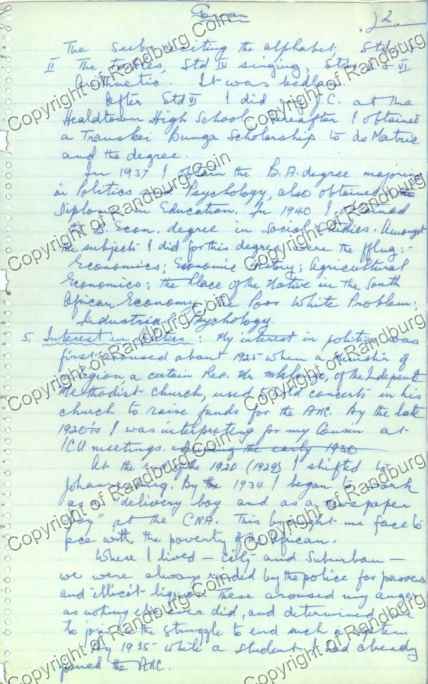 Govan
2
The Subs. reciting the alphabet, Std
II The tables, Std III singing, Stds V & VI
Arithmetic. It was bedlam.
After Std VI I did J.C. at the
Healdtown High School. Thereafter I obtained
a Transkei Bunga Scholarship to do Matric
and the degree.
In 1937 I obtain the B.A. degree majoring
in Politics and Psychology, also obtained the
Diploma in Education. In 1940 I obtained
the B. Econ. degree in Social Studies. Amongst
the subjects I did for this degree were the ffllug:-
Economics; Economic History; Agricultural
Economics; the Place of the Native in the South
African Economy; the Poor White Problem;
Industrial Psychology.
5. Interest in : My interest in politics was
first aroused about 1925 when a minister of
religion a certain Rev. Mr of the Independent
Methodist Church, used to hold concerts in his
church to raise funds for the ANC. By the late
1920's I was interpreting for my Cousin at
ICU meetings. during the early 1930
At the of the 1920 (1929) I shifted to
Johannesburg. By the 1930 I began to work
as a "delivery boy" and as a newspaper
"boy" at the CNA. This brought me face to
face with the poverty of the African.
Where I lived — City and Suburban —
we were always raided by the police for passes
and illicit liquor. These aroused my anger
as nothing else ever did, and determined me
to join the struggle to end such a system.
By 1935 while a student I had already
joined the ANC.
Copyright of Randburg Coin
Copyright of Randburg Coin
Copyright of Randburg Coin
Copyright of Randburg Coin
Copyright of Randburg Coin
Copyright of Randburg Coin